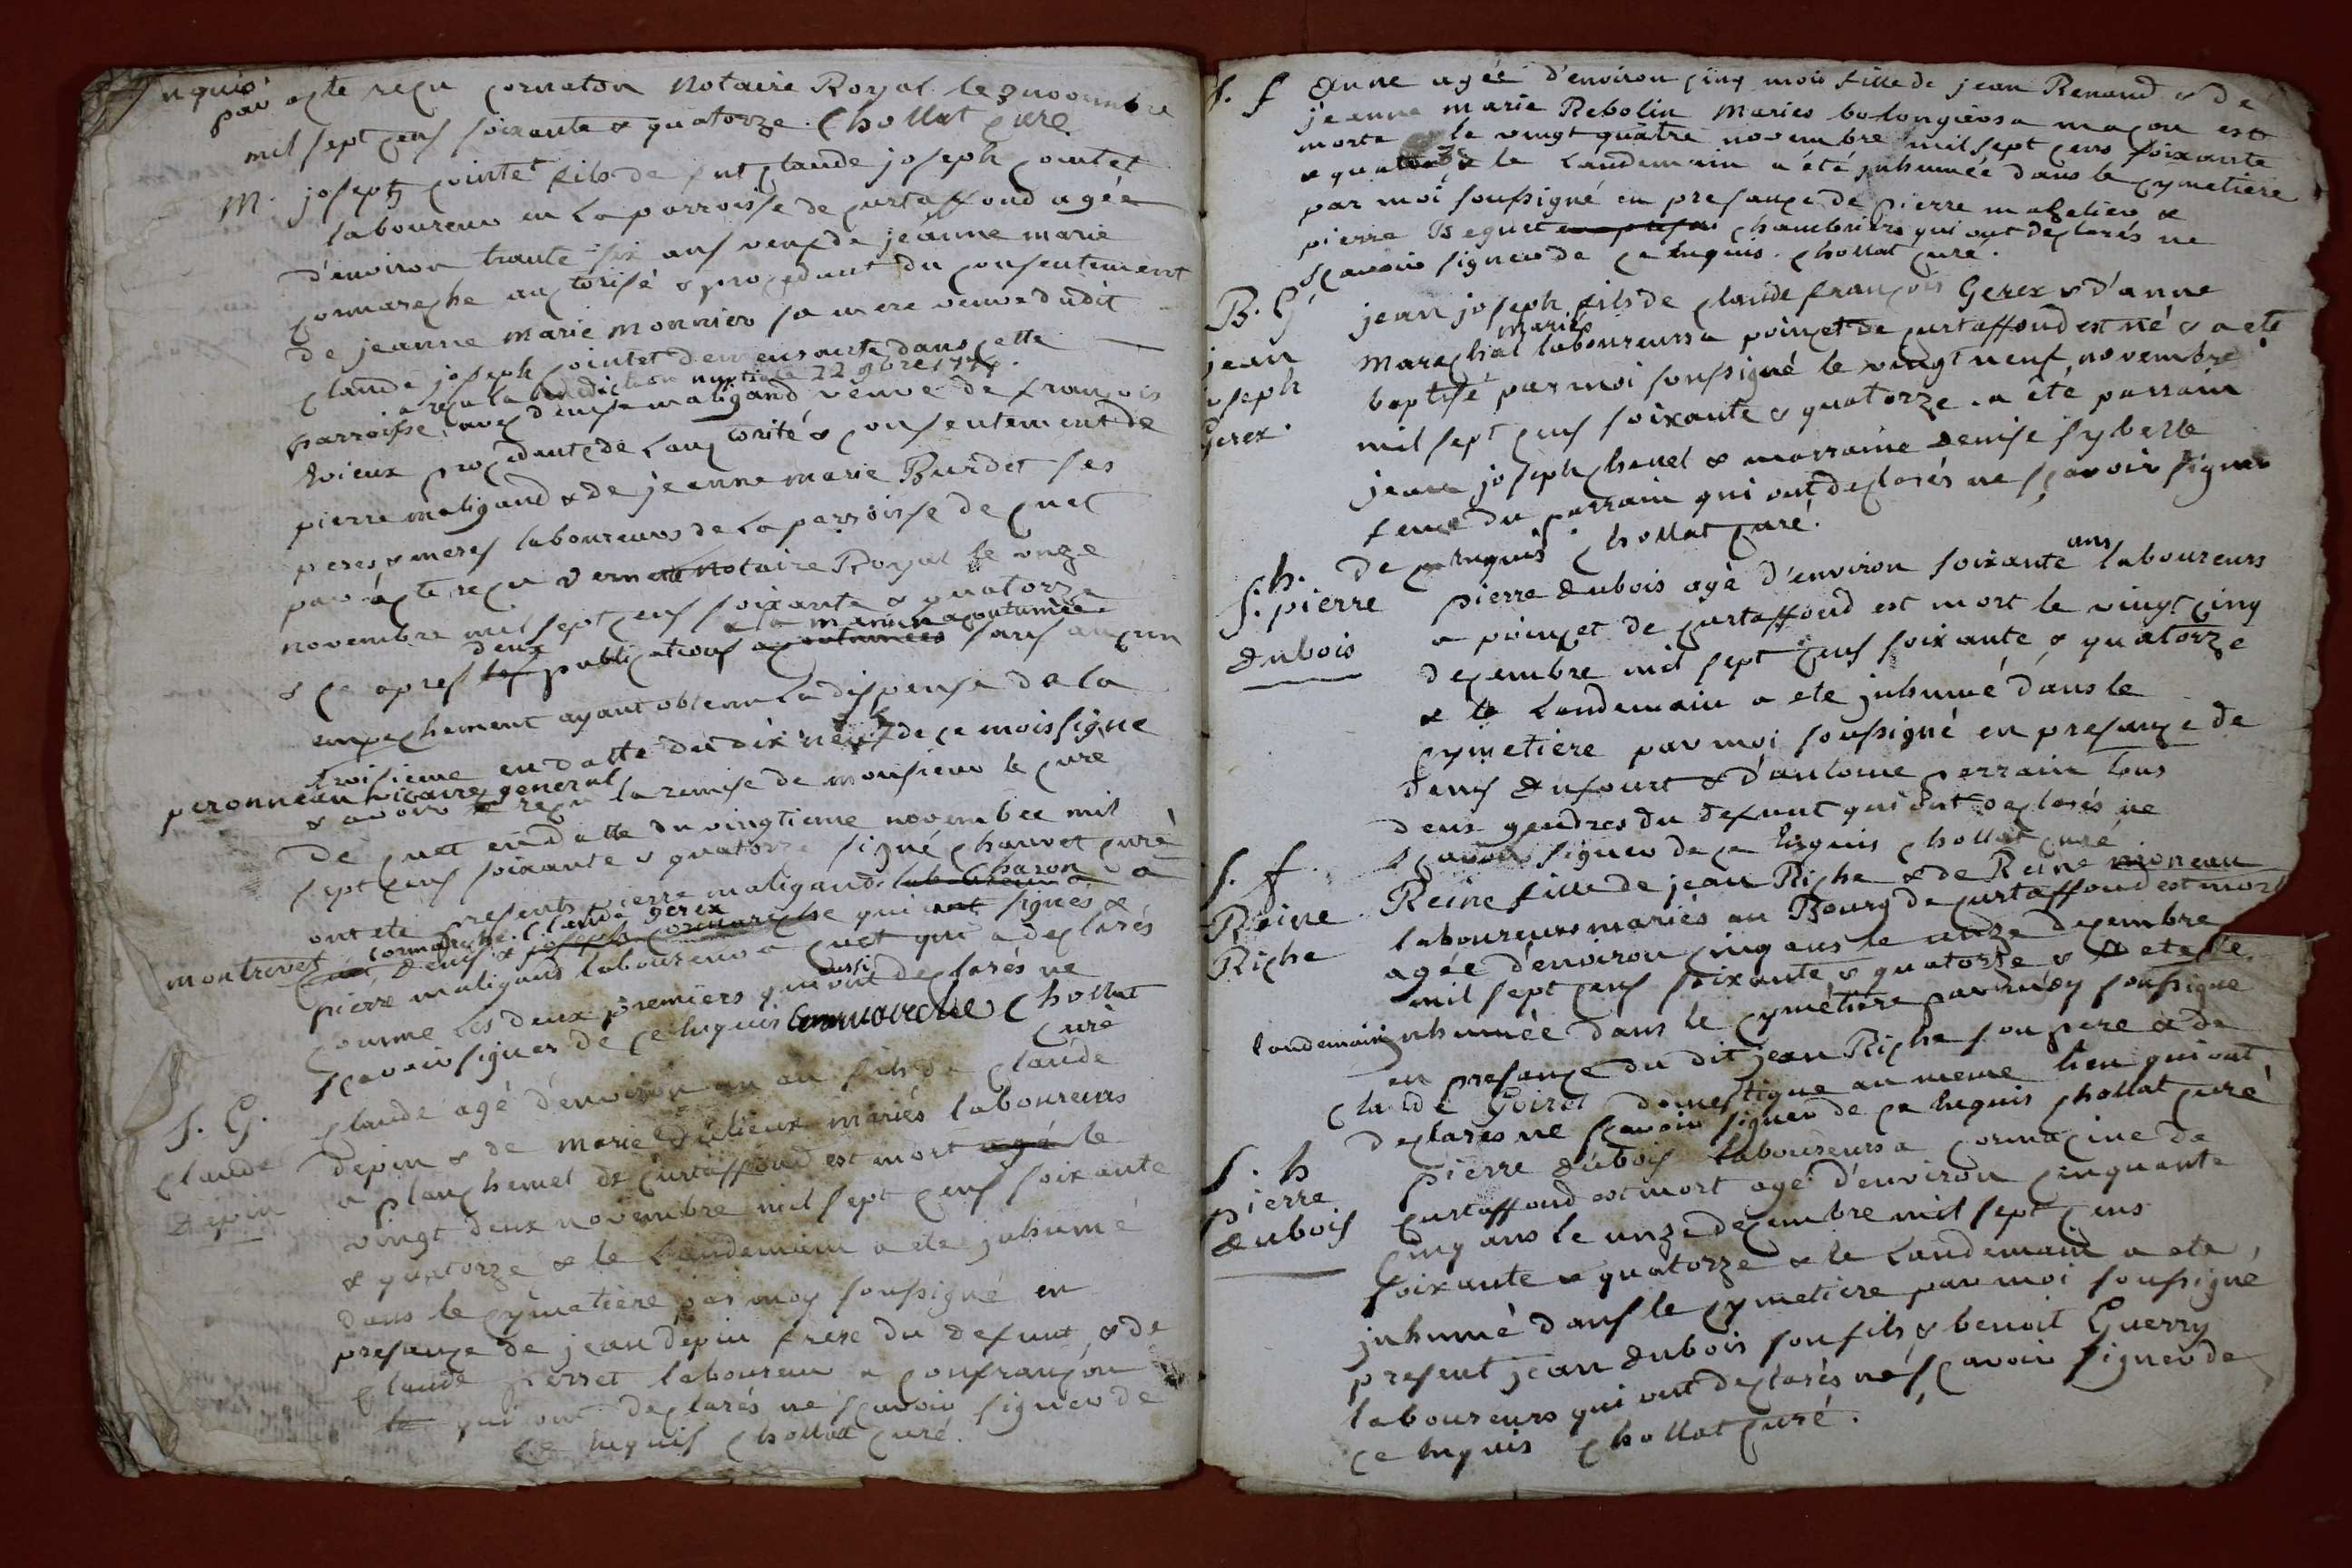 nquis
par acte reçu cornaton Notaire Royal le 9 novembre
mil sept cens soixante & quatorze. Chollat curé
M. joseph cointet fils de fut claude joseph cointet
laboureur en la parroisse de curtaffond agée
d'environ trante six ans veuf de jeanne marie
cormareche auctorisé & procedant du consentement
de jeanne marie monnier sa mere veuve dudit
claude joseph cointet demeurante dans cette
a reçu la benediction nuptiale 22 9bre 1774.
parroisse, avec denise maligand veuve de françois
vieux procedante de l'auctorité & consentement de
pierre maligand & de jeanne marie Burdet ses
peres & meres laboureurs de la parroisse de cuet
par acte reçu vernette Notaire Royal le onze
novembre mil sept cens soixante & quatorze
a la maniere acoutumée
deux
& ce apres les publications acoutumées sans aucun
empechement ayant obtenu la dispense de la
troisieme en datte du dix neuf de ce mois signé
peronneau vicaire general
& avoir reçu la remise de monsieur le curé
de cuet en datte du vingtieme novembre mil
sept cens soixante & quatorze signé chauvet curé
ont eté presents pierre maligand laboureur a
montrevet cormareche. claude gerex
denis & joseph cormareche qui ont signés &
pierre maligand laboureur a cuet qui a declarés
comme les deux premiers qui ont aussi declarés ne
sçavoir signer de ce enquis Cormareche Chollat
curé
S. G. claude agé d'environ un an fils de claude
claude depin & de marie Dulieux mariés laboureurs
depin a planchemel de curtaffond est mort agé le
vingt deux novembre mil sept cens soixante
& quatorze & le landemain a eté inhumé
dans le cymetiere par moy soussigné en
presance de jean depin frere du defunt, & de
claude perret laboureur a confrançon
qui ont declarés ne sçavoir signer de
ce enquis chollat curé.
S. f Anne agée d'environ cinq mois fille de jean Renaud & de
jeanne marie Rebolin mariés a maçon est
morte le vingt quatre novembre mil sept cens soixante
& quatorze & le landemain a été inhumée dans le cymetiere
par moi soussigné en presance de pierre &
pierre Beguet chambriere qui ont declarés ne
sçavoir signer de ce enquis. chollat curé.
B. G jean joseph fils de claude françois Gerex & d'anne
mariés
jean marechal laboureurs a poincet de curtaffond est né & a eté
joseph baptisé par moi soussigné le vingt neuf novembre
Gerex. mil sept cens soixante & quatorze. a été parrain
jean joseph chanel & marraine denise sybelle
feme du parrain qui ont declarés ne sçavoir signer
de ce enquis chollat curé.
S. h. pierre dubois agé d'environ soixante ans laboureurs
pierre a poincet de curtaffond est mort le vingt cinq
dubois decembre mil sept cens soixante & quatorze
& le landemain a ete inhumé dans le
cymetiere par moi soussigné en presance de
denis dufourt & d'antoine perrain tous
deux gendres du defunt qui ont declarés ne
sçavoir signer de ce enquis chollat curé
S. f. Reine fille de jean Riche & de Reine moneau
Reine laboureurs mariés au Bourg de curtaffond est mort
Riche agée d'environ cinq ans le onze decembre
mil sept cens soixante & quatorze & a ete le
landemain inhumée dans le cymétiere par moy soussigné
en presance du dit jean Riche son pere & de
claude Goiret domestique au meme lieu qui ont
declarés ne sçavoir signer de ce enquis chollat curé
S. h pierre dubois laboureurs a cormacine de
pierre curtaffond est mort agé d'environ cinquante
dubois cinq ans le onze decembre mil sept cens
soixante & quatorze & le landemain a ete
inhumé dans le cymetiere par moi soussigné
present jean dubois son fils & benoit Guerry
laboureurs qui ont declarés ne sçavoir signer de
ce enquis chollat curé.